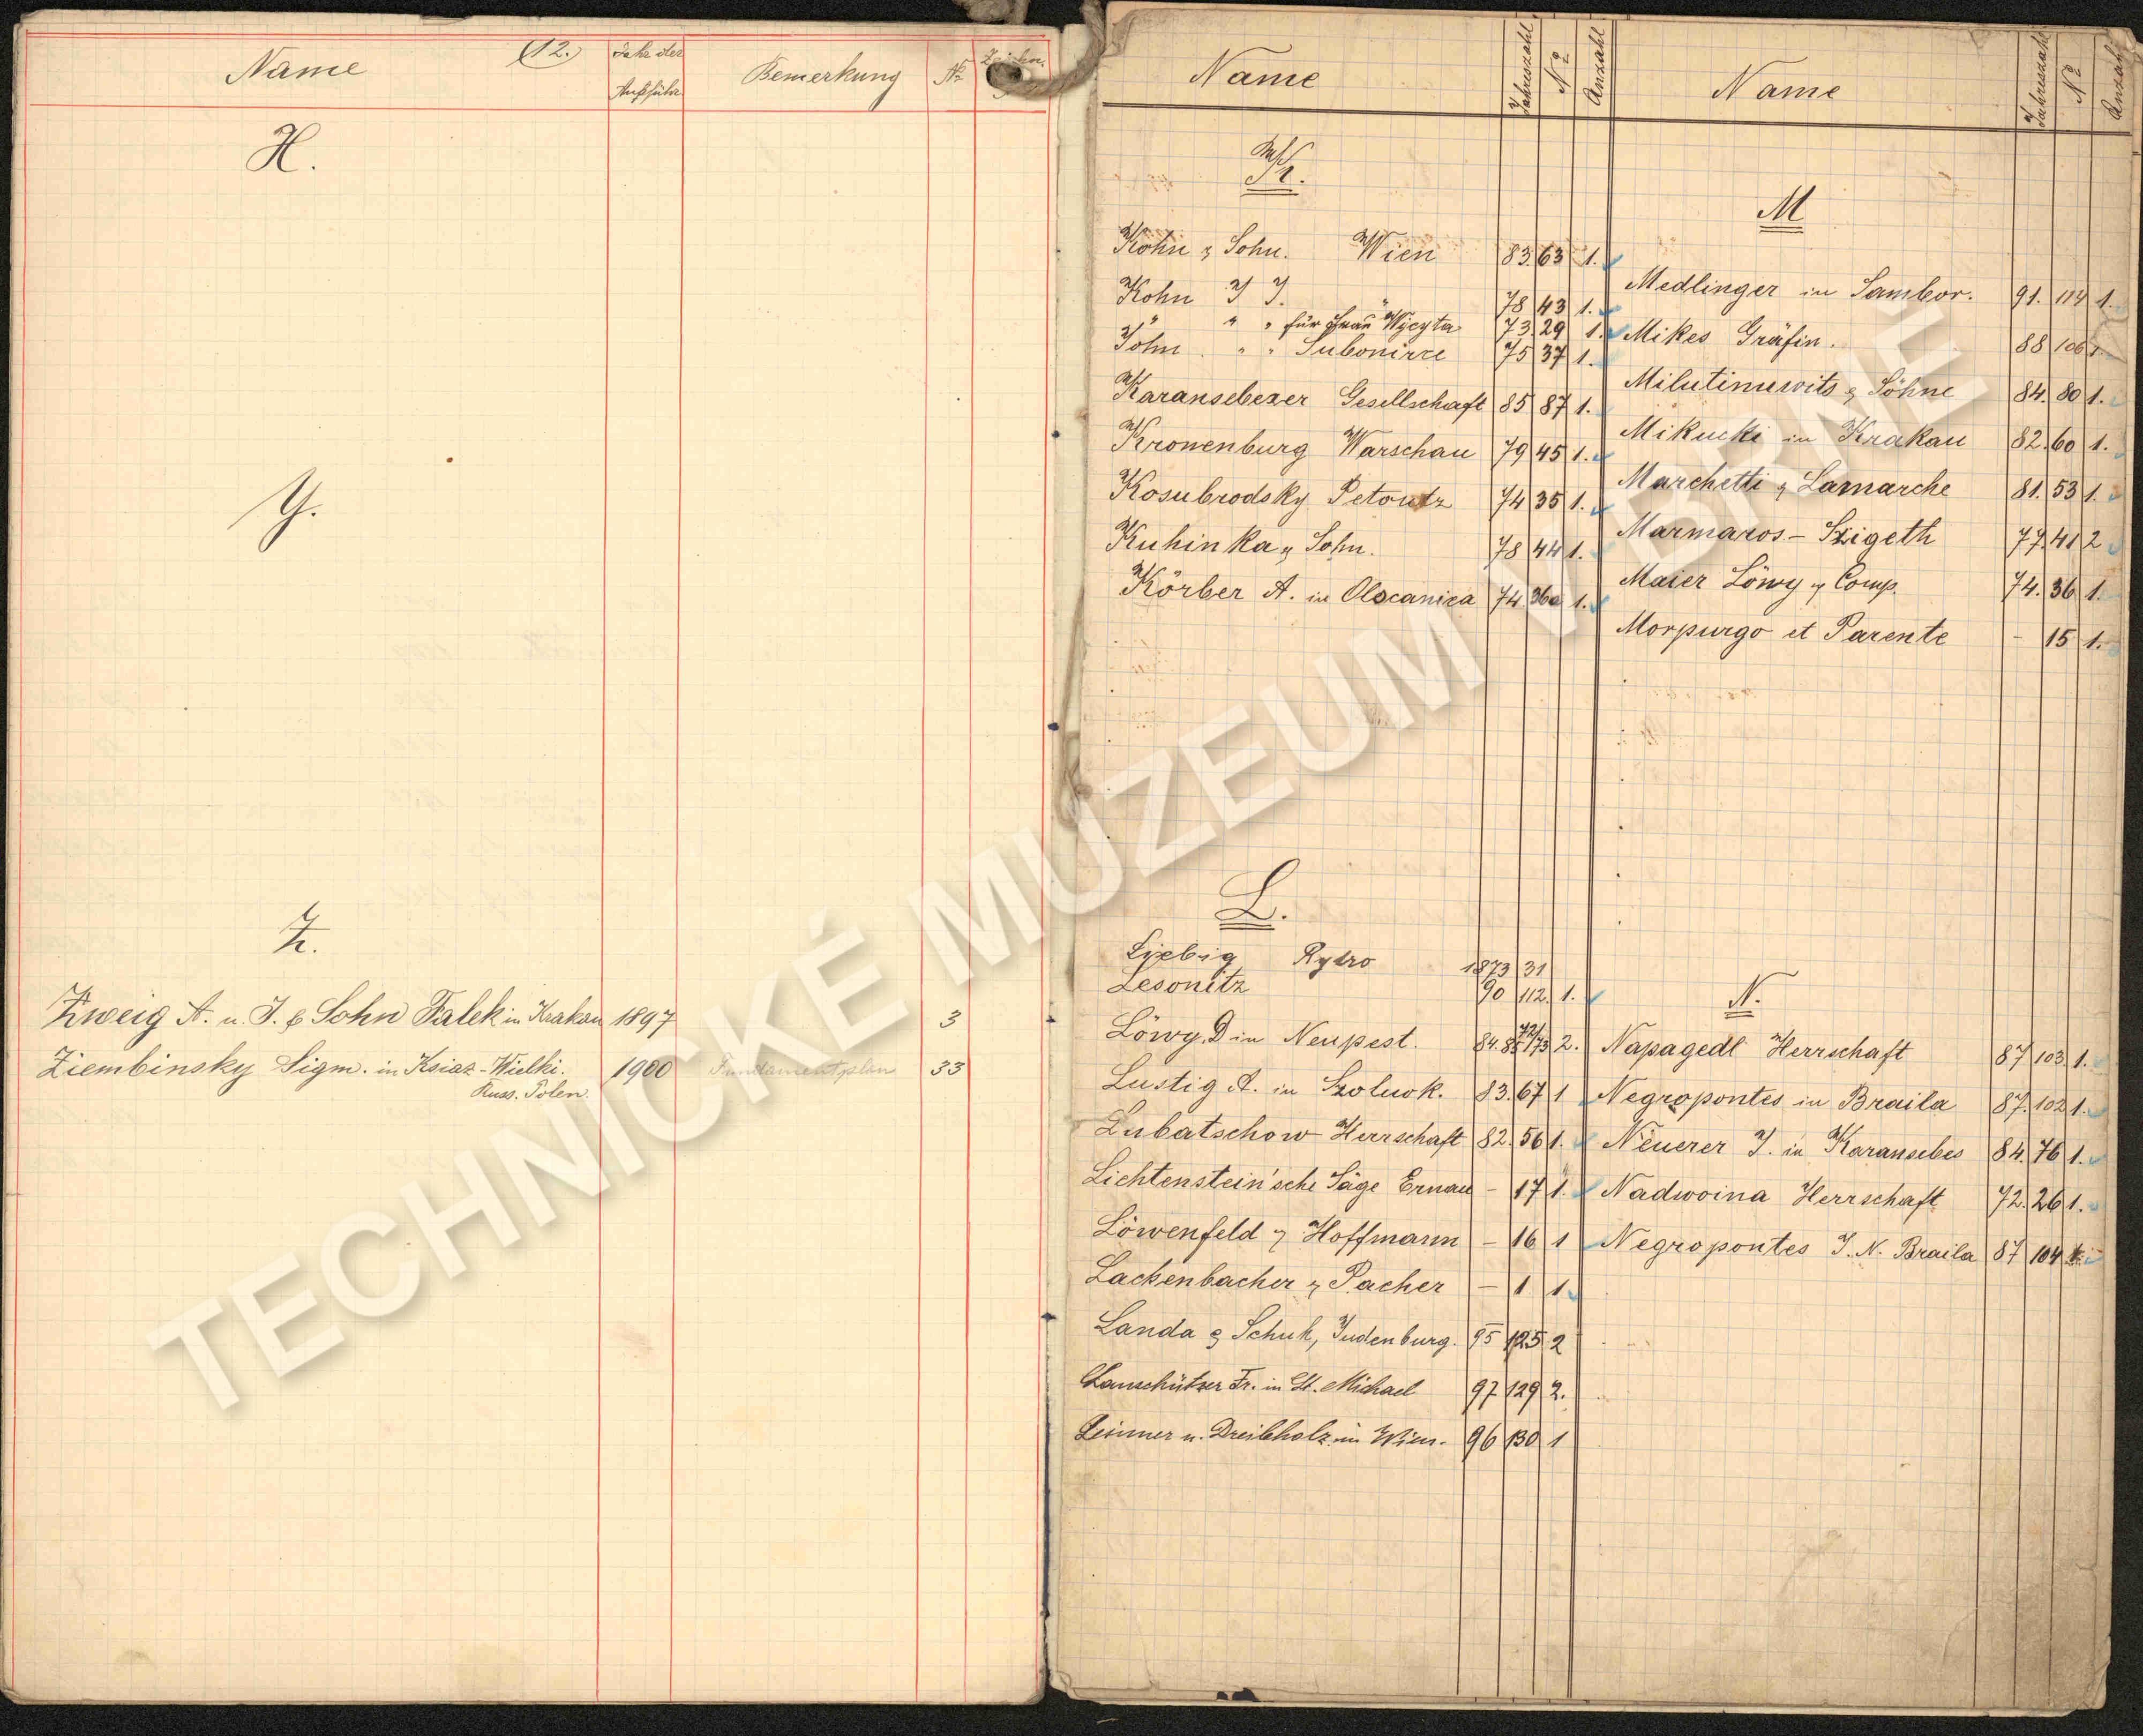 Name (12.) Jahr der Ausführ. Bemerkung No Zeichn.
H.
Y.
Z.
Zweig A. u. J. & Sohn Falek in Krakau 1897 3
Ziembinsky Sigm. in Ksiaz-Wielki. 1900 Fundamentplan 33
Russ. Polen.
Name Jahreszahl No Anzahl
K.
Kohn & Sohn. Wien 83. 63 1.
Kohn J J. 78 43 1.
" " " für Frau Wycyta 73. 29 1.
John " " 75 37 1.
Karansebeser Gesellschaft 85 87 1.
Kronenburg Warschau 79 45 1.
Kosubrodsky 74 35 1.
Kuhinka & Sohn. 78 44 1.
Körber A. in 74. 36a 1.
L.
Liebig Rytro 1873 31
Lesonitz 90 112. 1.
Löwy D in Neupest. 84.85 72/73 2.
Lustig A. in 83. 67 1
Lubatschow Herrschaft 82. 56 1.
Lichtenstein'sche Säge Ernau - 17 1.
Löwenfeld & Hoffmann - 16 1
Lackenbacher & Pacher - 1 1
Landa & Schuh, Judenburg. 95 125 2
Lanschützer Fr. in St. Michael 97 129 2.
Leinner u. Dreibholz in Wien. 96 130 1
Name Jahreszahl No Anzahl
M
Medlinger in Sambor. 91. 114 1.
Mikes Gräfin. 88 106 1.
Milutinuwits & Söhne 84. 80 1.
Mikucki in Krakau 82. 60 1.
Marchetti & Lamarche 81. 53 1.
Marmaros-Szigeth 77. 41 2
Maier Löwy & Comp. 74. 36 1.
Morpurgo et Parente - 15 1.
N.
Napagedl Herrschaft 87 103. 1.
Negropontes in Braila 87. 102 1.
Neuerer J. in Karansebes 84. 76 1.
Nadwoina Herrschaft 72. 26 1.
Negropontes J. N. Braila 87 104
TECHNICKÉ MUZEUM V BRNĚ